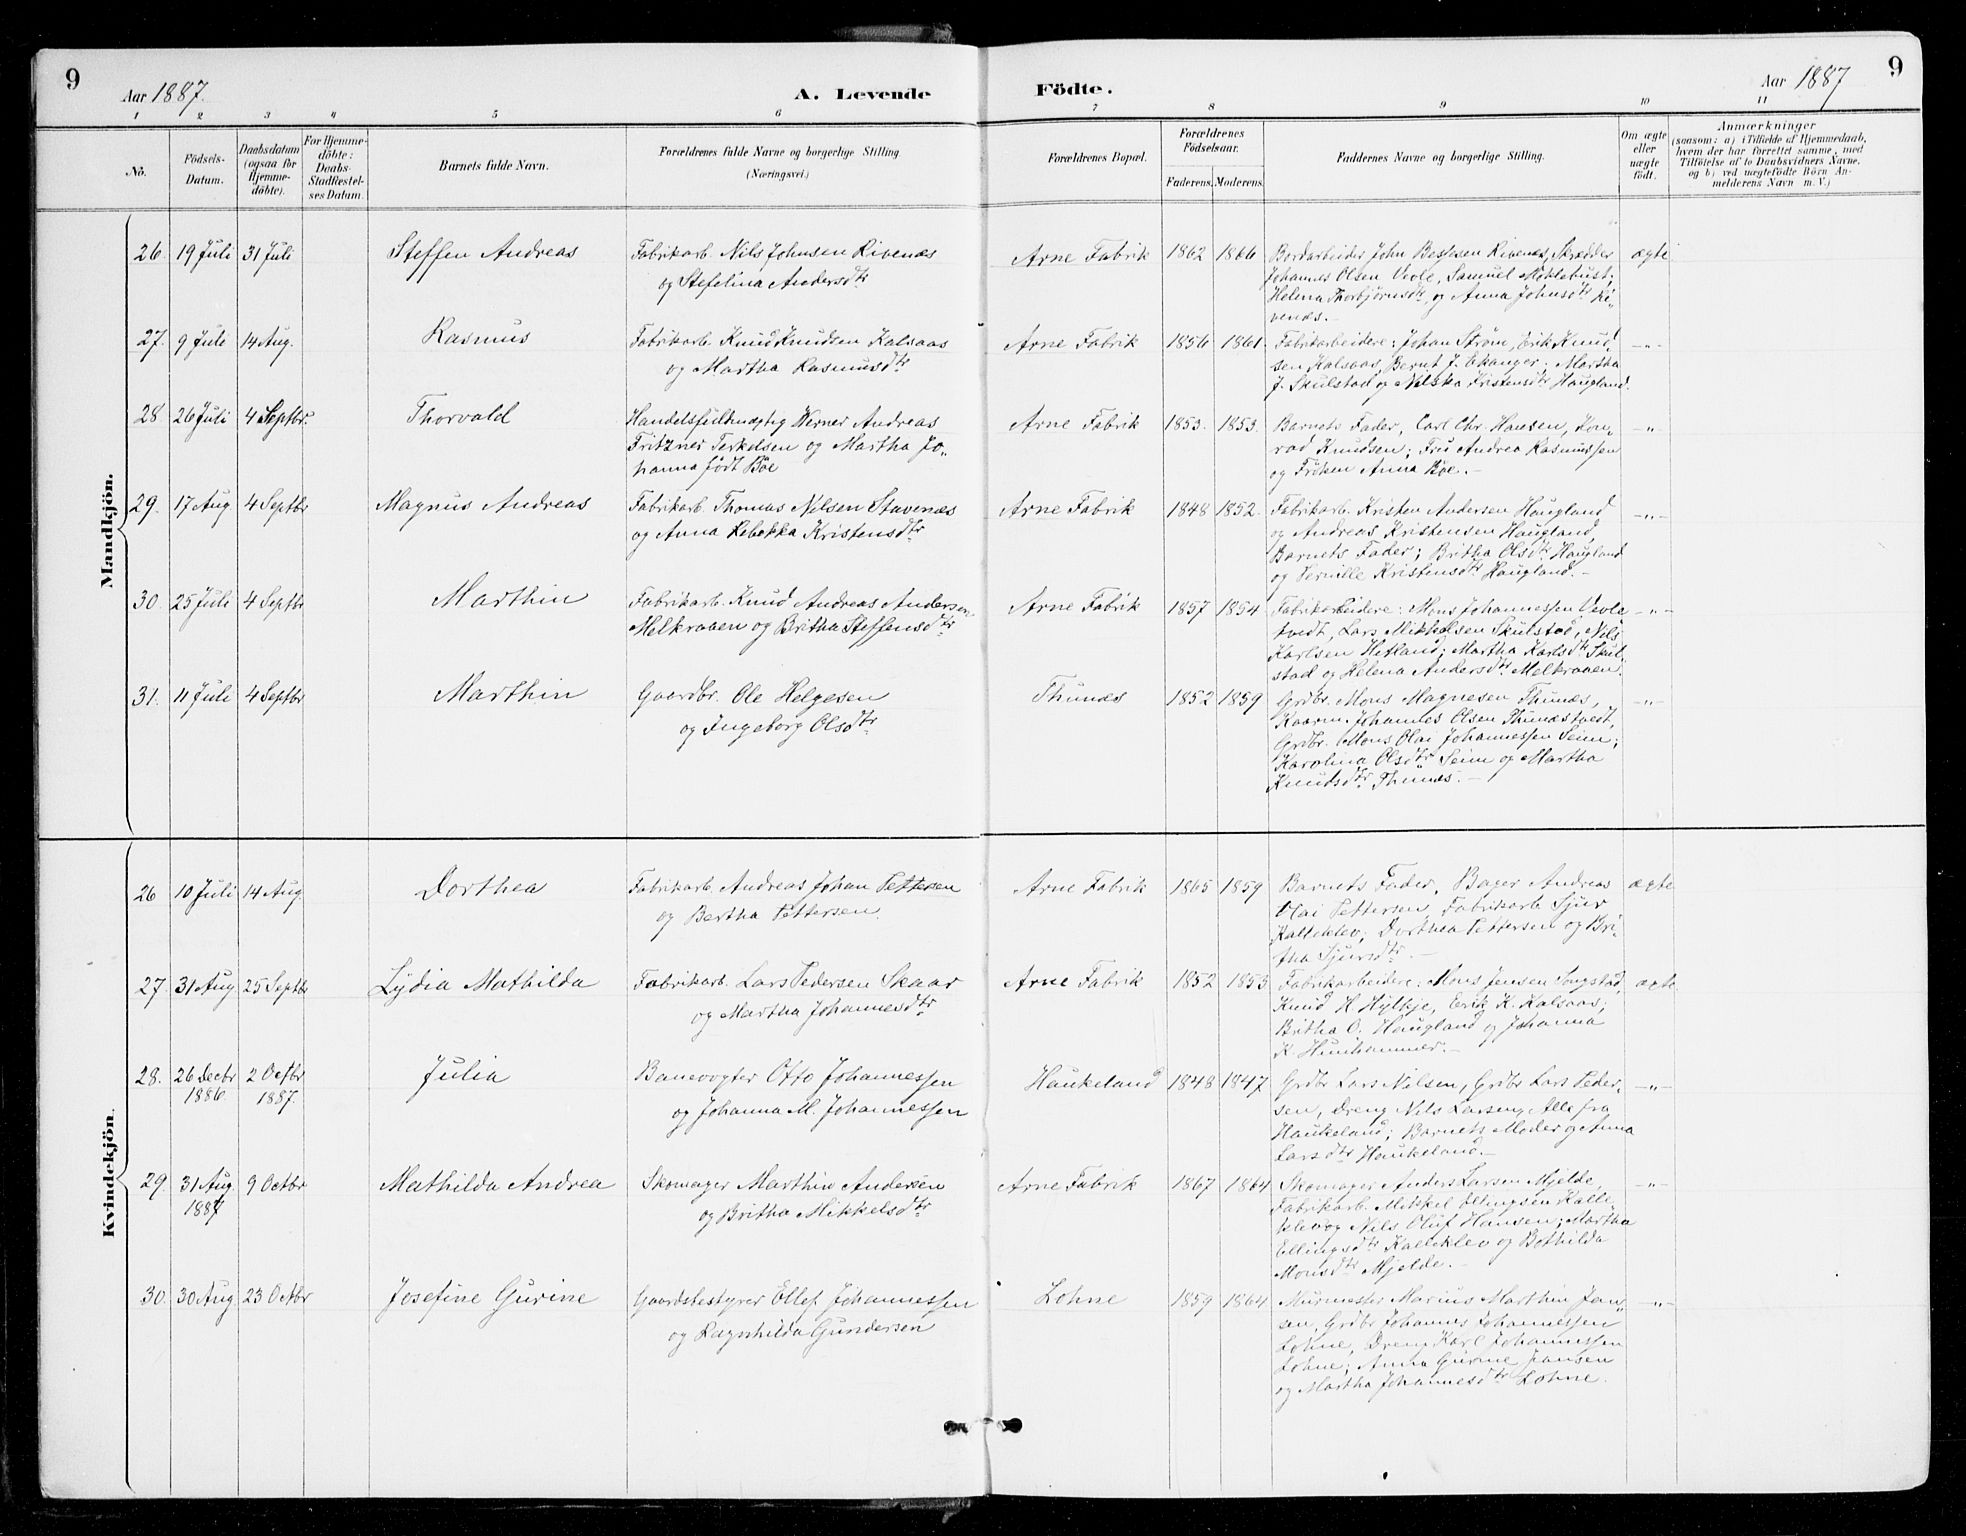 9
Aar 1887.
A. Levende Födte.
Aar 1887
9
1 2 3 4 5 6 7 8 9 10 11
No.
Födsels-
Datum.
Daabsdatum
(ogsaa for
Hjemme-
döbte).
For Hjemme-
döbte:
Daabs-
Stadfæstel-
ses Datum.
Barnets fulde Navn.
Forældrenes fulde Navne og borgerlige Stilling.
(Næringsvei.)
Forældrenes Bopæl.
Forældrenes
Födselsaar.
Faderens. Moderens.
Faddernes Navne og borgerlige Stilling.
Om ægte
eller
uægte
födt.
Anmærkninger
(saasom: a) i Tilfælde af Hjemmedaab,
hvem der har forrettet samme, med
Tilföielse af to Daabsvidners Navne.
og b) ved uægtefödte Börn An-
melderens Navn m. V.)
Mandkjön.
26 19 Juli 31 Juli
Steffen Andreas
Fabrikarb. Nils Johnsen Rivenæs
og Stefelina Andersdtr
Arne Fabrik 1862 1866
Bordarbeider John Rivenæs, Skrædder
Johannes Olsen Veole, Samuel Myklebust;
Helena Thorbjørnsdtr, og Anna Johnsdtr Ri-
venæs.-
ægte
27. 9 Juli 14 Aug.
Rasmus
Fabrikarb. Knud Knudsen Kalsaas
og Martha Rasmusdtr
Arne Fabrik 1856 1861.
Fabrikarbeidere: Johan Strøm, Erik Knud-
sen Kalsaas, Bernt J. Ekanger; Martha
J. Skulstad og Nilska Kristensdtr Haugland.
-"-
28 26 Juli 4 Septbr.
Thorvald
Handelsfuldmægtig Werner Andreas
Fritzner Terkelsen og Martha Jo-
hanna født Bøe
Arne Fabrik 1853. 1853.
Barnets Fader, Carl Chr. Hansen, Kon-
rad Knudsen; Fru Andrea Rasmussen
og Frøken Anna Bøe.-
-"-
29. 17 Aug 4 Septbr
Magnus Andreas
Fabrikarb. Thomas Nilsen Stavenæs
og Anna Rebekka Kristensdtr
Arne Fabrik 1848 1852.
Fabrikarb. Kristen Andersen Haugland
og Andreas Kristensen Haugland,
Barnets Fader; Britha Olsdtr Haugland
og Pernille Kristensdtr Haugland.-
-"-
30. 25 Juli 4 Septbr
Marthin
Fabrikarb. Knud Andreas Andersen
Melkraaen og Britha Steffensdtr
Arne Fabrik 1857 1854
Fabrikarbeidere: Mons Johannessen Veole
tvedt, Lars Mikkelsen Skulstad, Nils
Karlsen Hetland; Martha Karlsdtr Skul-
stad og Helena Andersdtr Melkraaen.
-"-
31. 11 Juli 4 Septbr
Marthin
Gaardbr. Ole Helgesen
og Ingeborg Olsdtr
Thunæs 1852 1859
Grdbr. Mons Magnesen Thunæs,
Kaarm. Johannes Olsen Thunæstvedt,
Grdbr. Mons Olai Johannessen Seim;
Karolina Olsdtr Seim og Martha
Knudsdtr Thunæs.-
-"-
Kvindekjön.
26 10 Juli 14 Aug
Dorthea
Fabrikarb. Andreas Johan Pettersen
og Bertha Pettersen.
Arne Fabrik 1865 1859
Barnets Fader, Bager Andreas
Olai Pettersen, Fabrikarb Sjur
Kalleklev; Dorthea Pettersen og Bri-
tha Sjursdtr.-
ægte
27. 31 Aug 25 Septbr
Lydia Mathilda
Fabrikarb. Lars Pedersen Skaar
og Martha Johannesdtr
Arne Fabrik 1852 1853
Fabrikarbeidere: Mons Jensen Songstad,
Knud H. Hylkje, Erik K. Kalsaas;
Britha O. Haugland og Johanna
K. Hunhammer.-
ægte
28. 26 Decbr 2 Octbr
1886. 1887.
Julia
Banevogter Otto Johannessen
og Johanna M. Johannessen
Haukeland 1848 1847
Grdbr Lars Nilsen, Grdbr Lars Peder-
sen, Dreng Nils Larsen, Alle fra
Haukeland; Barnets Moder og Anna
Larsdtr Haukeland.-
-"-
29. 31 Aug. 9 Octbr
1887
Mathilda Andrea
Skomager Marthin Andersen
og Britha Mikkelsdtr
Arne Fabrik 1867 1864
Skomager Anders Larsen Mjelde,
Fabrikarb. Mikkel Ellingsen Kalle-
klev og Nils Oluf Hansen; Martha
Ellingsdtr Kalleklev og Bothilda
Monsdtr Mjelde.-
-"-
30. 30 Aug 23 Octbr
Josefine Gurine
Gaardsbestyrer Ellef Johannessen
og Ragnhilda Gundersen
Lohne 1859 1864
Murmester Marius Marthin Jan-
sen, Grdbr Johannes Johannessen
Lohne, Dreng Karl Johannessen
Lohne; Anna Gurine Jansen
og Martha Johannesdtr Lohne.
-"-